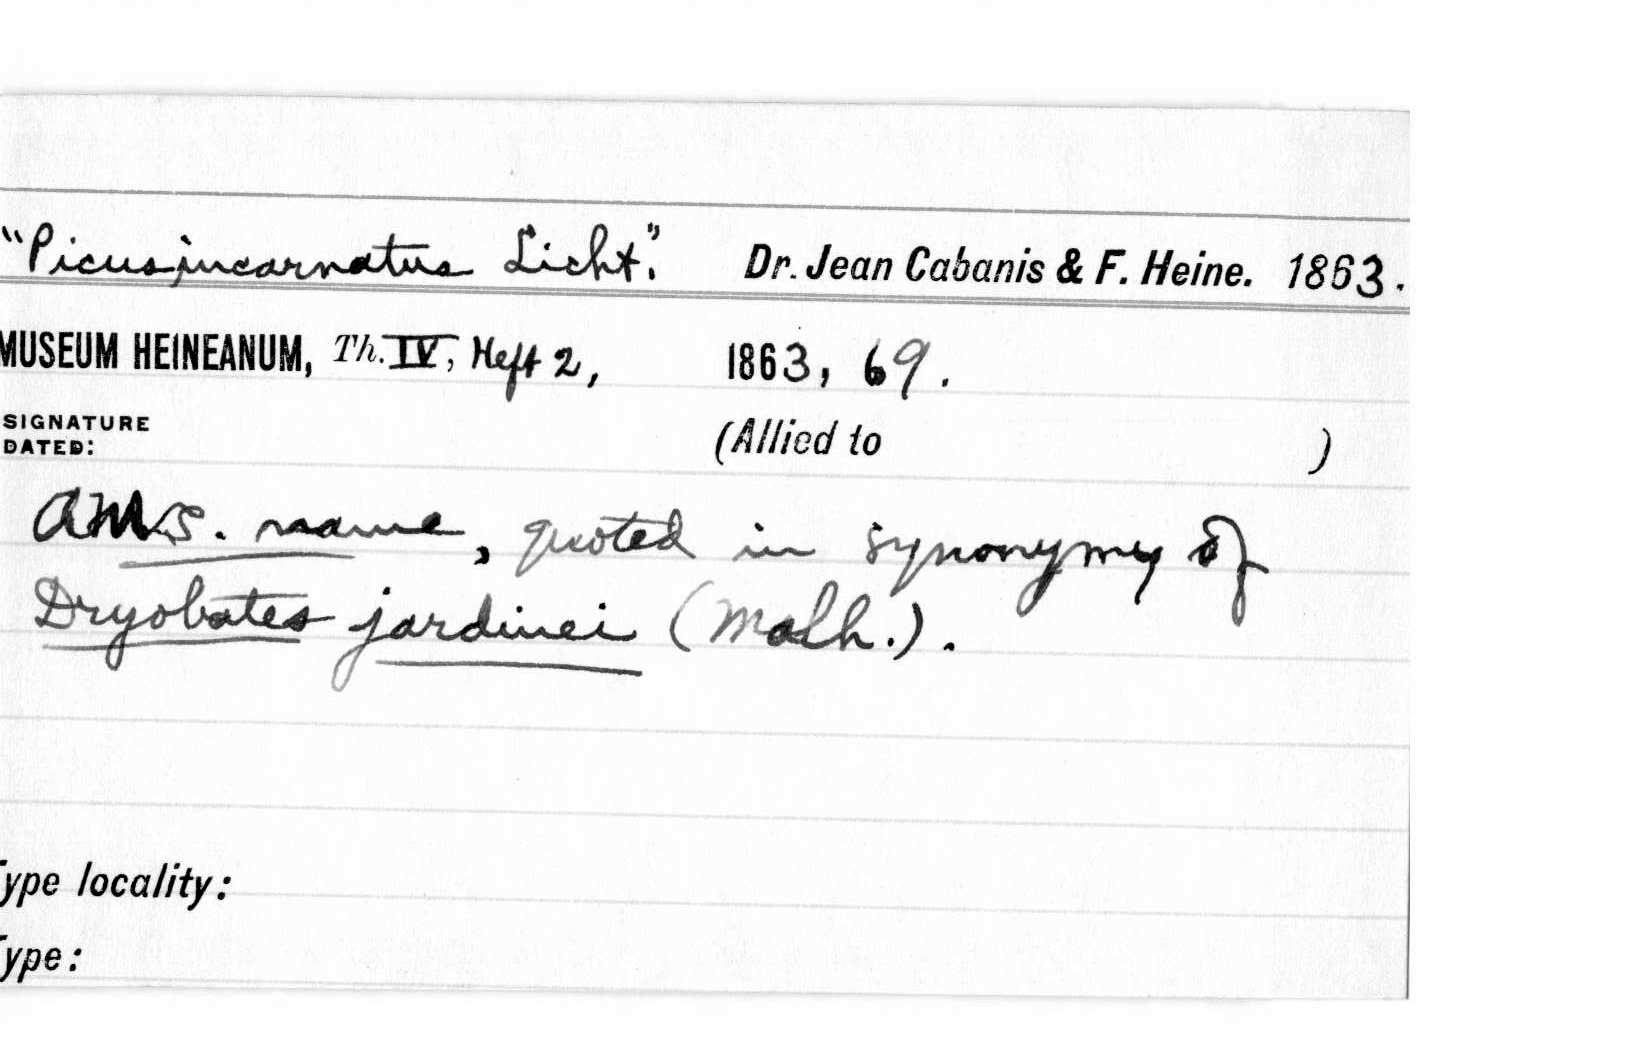 "Picus incarnatus Licht." Dr. Jean Cabanis & F. Heine. 1863.
MUSEUM HEINEANUM, Th. IV, Heft 2, 1863, 69.
SIGNATURE
DATED:
(Allied to )
A MS. name, quoted in synonymy of
Dryobates jardinei (Malh.).
Type locality:
Type: